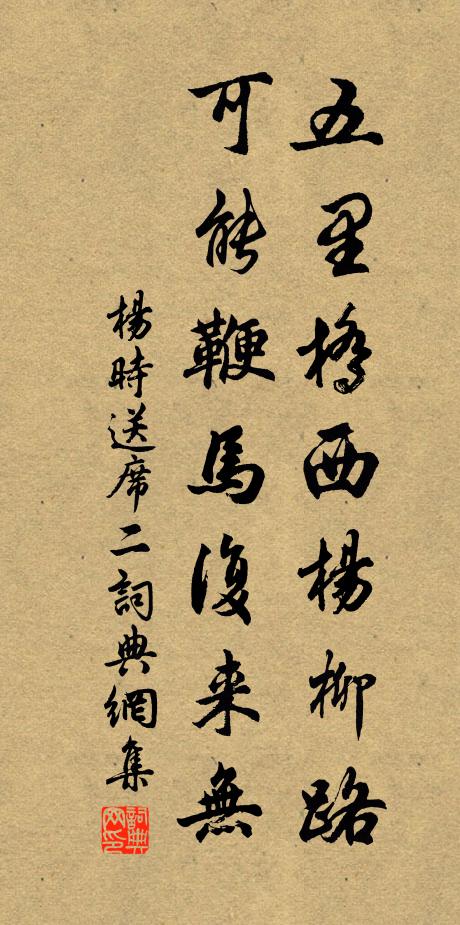 五里橋西楊柳路
可能鞭馬復来無
楊時送席二詞典網集
詞典网印